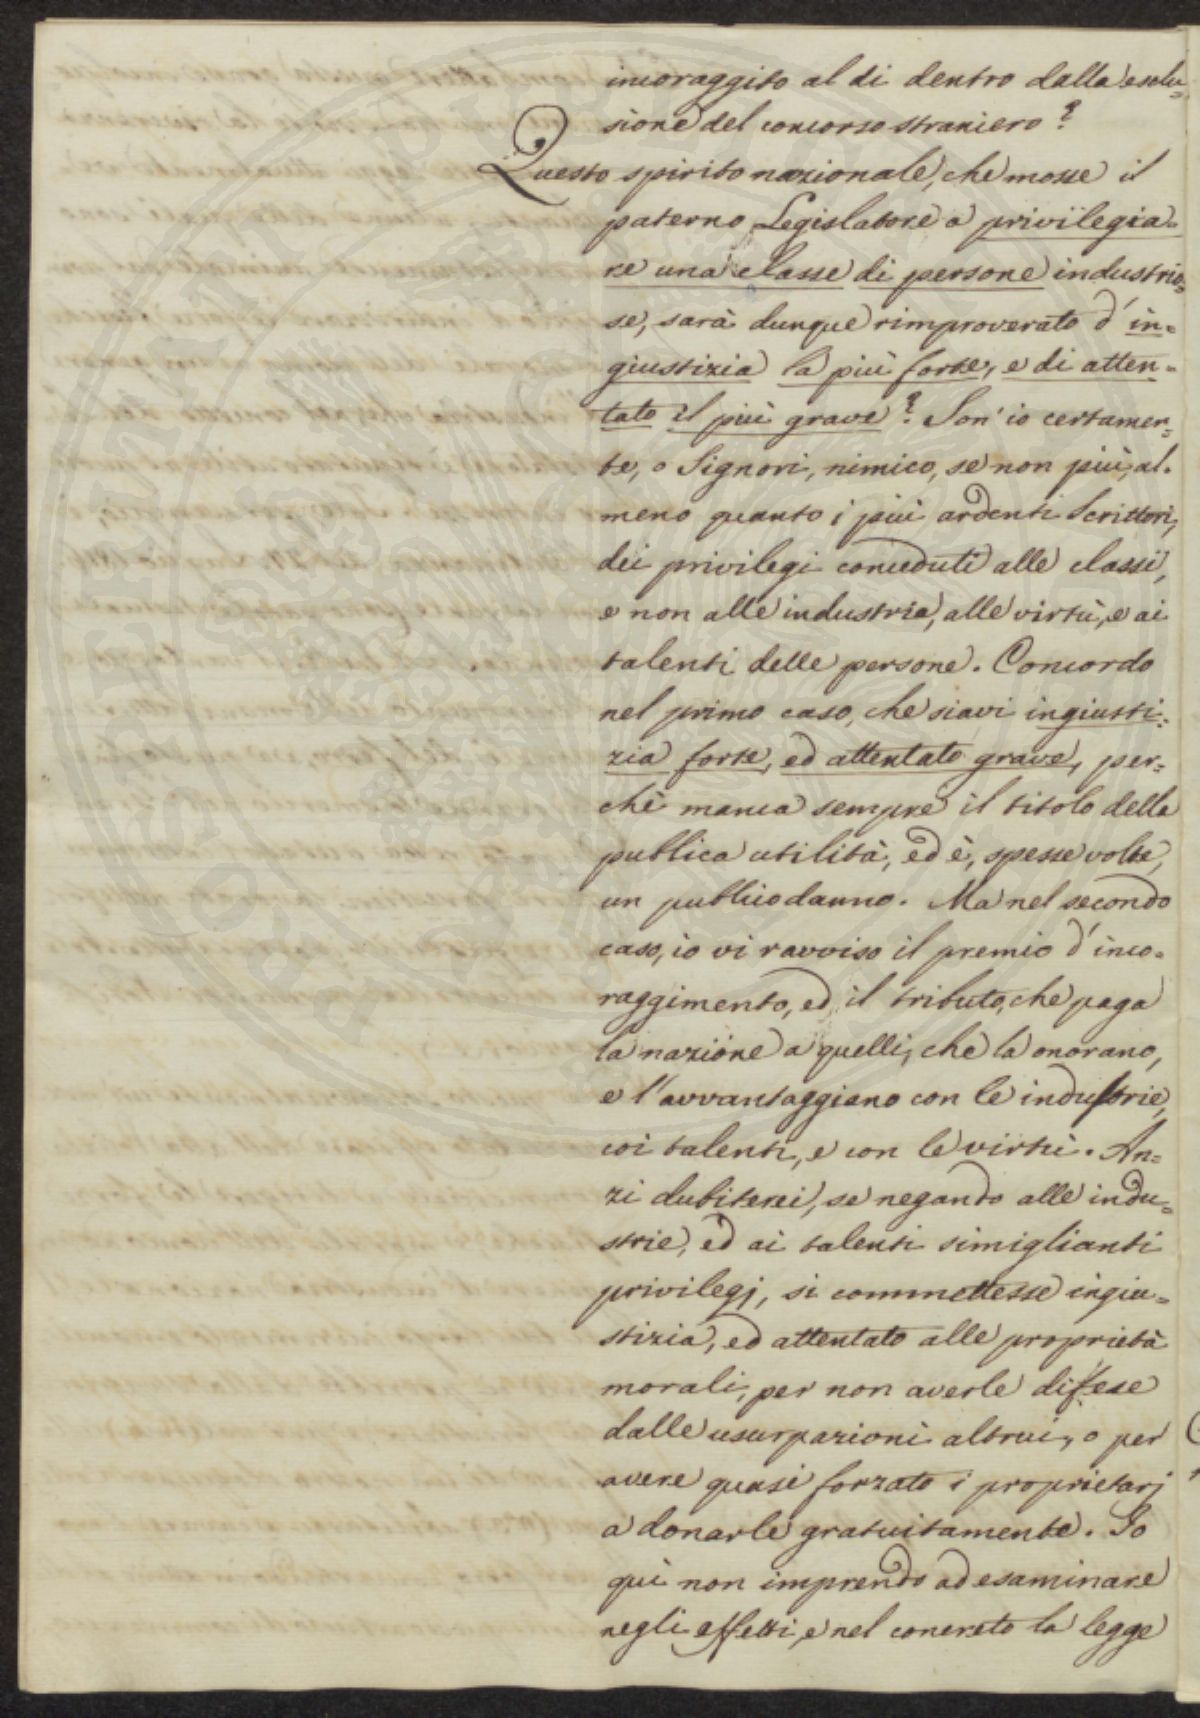 incoraggito al di dentro dalla esclu=
sione del concorso straniero?
Questo spirito nazionale, che mosse il
paterno Legislatore a privilegia=
re una classe di persone industrio=
se, sarà dunque rimproverato d'in=
giustizia la più forte, e di atten=
tato il più grave? Son'io certamen=
te, o Signori, nimico, se non più, al=
meno quanto i più ardenti Scrittori,
dei privilegi conceduti alle classi,
e non alle industrie, alle virtù, e ai
talenti delle persone. Concordo
nel primo caso, che siavi ingiusti=
zia forte, ed attentato grave, per=
chè manca sempre il titolo della
publica utilità, ed è, spesse volte,
un publico danno. Ma nel secondo
caso, io vi ravviso il premio d'inco=
raggimento, ed il tributo, che paga
la nazione a quelli, che la onorano,
e l'avvantaggiano con le industrie,
coi talenti, e con le virtù. An=
zi dubiterei, se negando alle indu=
strie, ed ai talenti simiglianti
privilegj, si commettesse ingiu=
stizia, ed attentato alle proprietà
morali, per non averle difese
dalle usurpazioni altrui, o per
avere quasi forzato i proprietarj
a donarle gratuitamente. Io
qui non imprendo ad esaminare
negli effetti, e nel concreto la legge